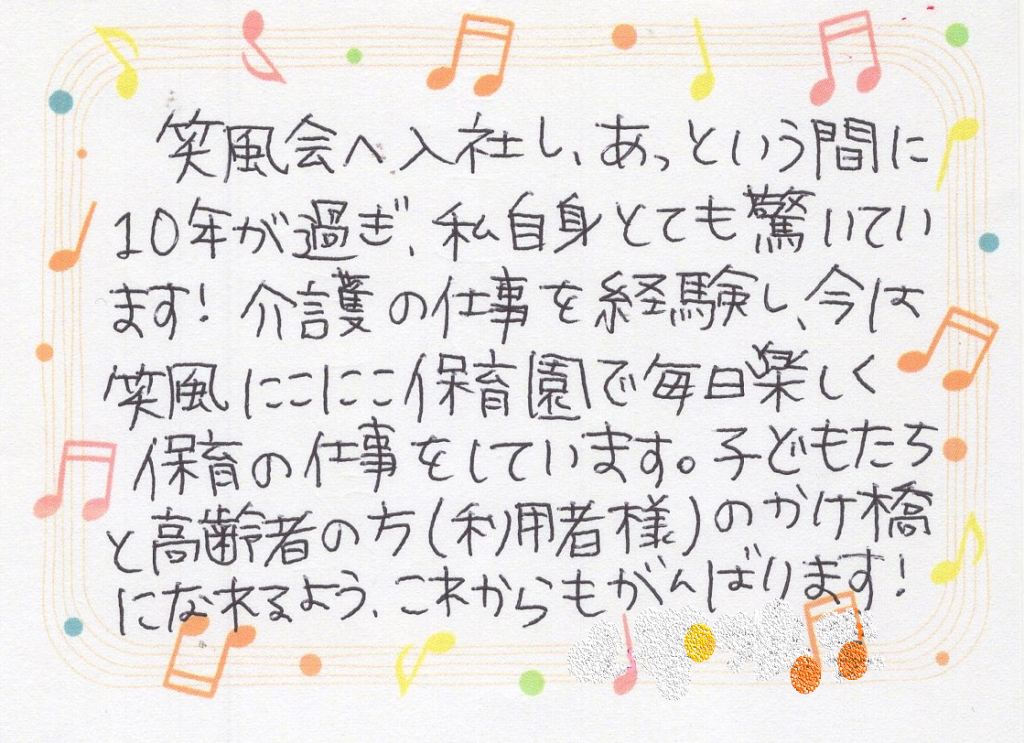 笑風会へ入社し、あっという間に
10年が過ぎ、私自身とても驚いてい
ます！介護の仕事を経験し、今は
笑風にこにこ保育園で毎日楽しく
保育の仕事をしています。子どもたち
と高齢者の方(利用者様)のかけ橋
になれるよう、これからもがんばります！